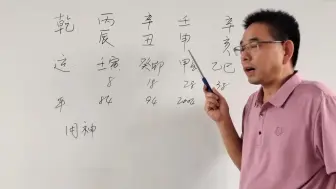 乾 丙 辛 壬 辛
辰 丑 申 亥
运 壬寅 癸卯 甲 乙巳
8 18 28 38
年 84 94
用神